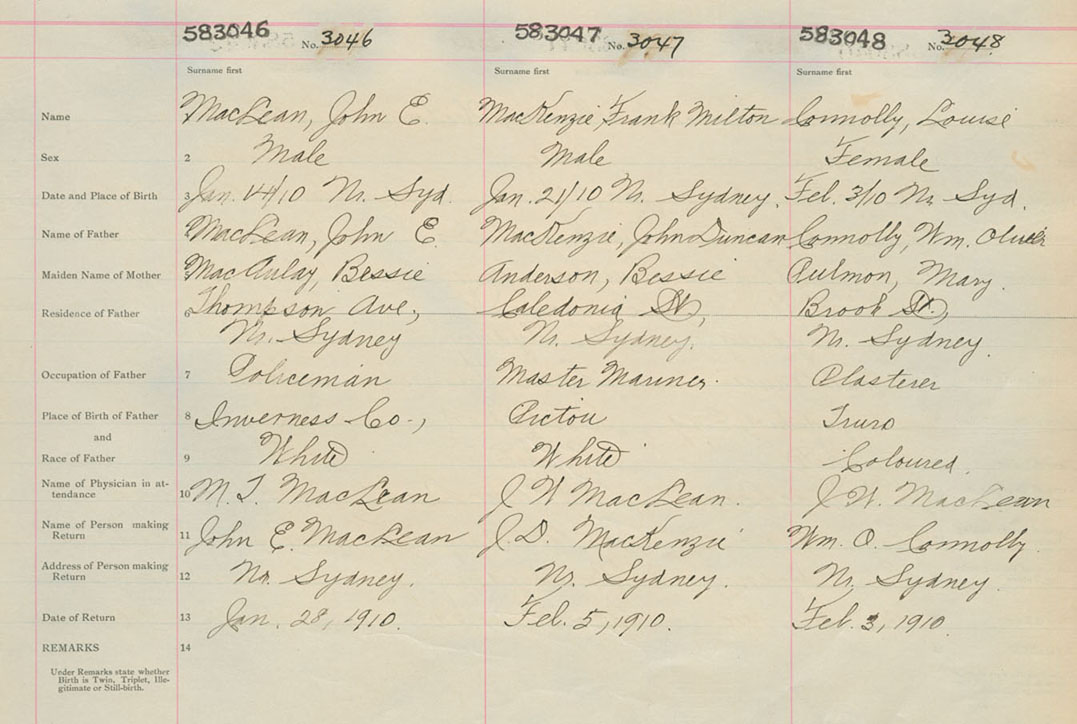 583046 No. 3046 583047 No. 3047 583048 No. 3048
Surname first Surname first Surname first
Name MacLean, John E. MacKenzie, Frank Milton Connolly, Louise
Sex 2 Male Male Female
Date and Place of Birth 3 Jan. 14/10 Nr. Syd. Jan. 21/10 Nr. Sydney. Feb. 3/10 Nr. Syd.
Name of Father MacLean, John E. MacKenzie, John Duncan Connolly, Wm. Oliver
Maiden Name of Mother MacAulay, Bessie Anderson, Bessie Mary.
Residence of Father 6 Thompson Ave., Caledonia St., Brook St.,
Nr. Sydney Nr. Sydney. Nr. Sydney.
Occupation of Father 7 Policeman Master Mariner. Plasterer
Place of Birth of Father 8 Inverness Co., Pictou Truro
and
Race of Father 9 White White Coloured.
Name of Physician in at-
tendance 10 M. T. MacLean J W MacLean. J W. MacLean
Name of Person making
Return 11 John E. MacLean J. D. MacKenzie Wm. O. Connolly.
Address of Person making
Return 12 Nr. Sydney. Nr. Sydney. Nr. Sydney.
Date of Return 13 Jan. 28, 1910. Feb. 5, 1910. Feb. 3, 1910
REMARKS 14
Under Remarks state whether
Birth is Twin, Triplet, Ille-
gitimate or Still-birth.